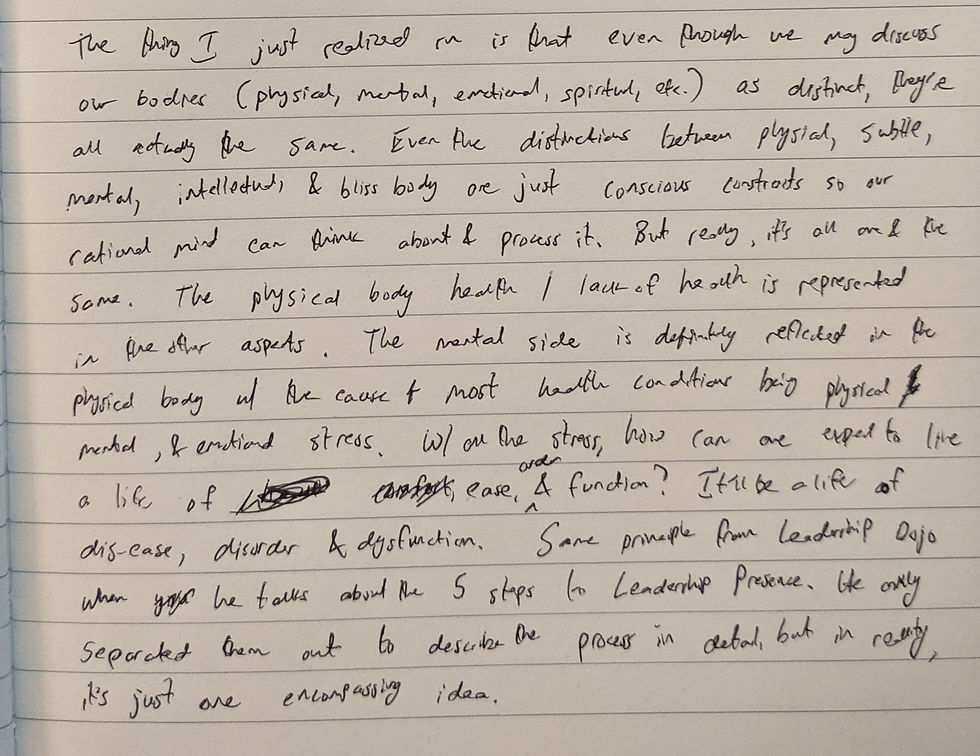 The thing I just realized rn is that even though we may discuss
our bodies (physical, mental, emotional, spiritual, etc.) as distinct, they're
all actually the same. Even the distinctions between physical, subtle,
mental, intellectual, & bliss body are just conscious constructs so our
rational mind can think about & process it. But really, it's all one & the
same. The physical body health / lack of health is represented
in the other aspects. The mental side is definitely reflected in the
physical body w/ the cause of most health conditions being physical
mental, & emotional stress. W/ all the stress, how can one expect to live
a life of comfort, ease, order & function? It'll be a life of
dis-ease, disorder & dysfunction. Same principle from Leadership Dojo
when he talks about the 5 steps to Leadership Presence. He only
separated them out to describe the process in detail, but in reality,
it's just one encompassing idea.